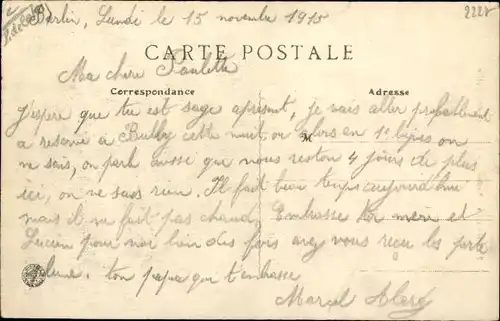 Barlin, Lundi le 15 novembre 1915
2227
CARTE POSTALE
Ma chere Paulette
Correspondance
Adresse
J'espere que tu est sage apresent, je vais aller probablement
a reserve a Bully cette nuit, ou alors en 1e lignes on
M
ne sais, on parle aussi que nous reston 4 jours de plus
ici, on ne sais rien. Il fait bien temps aujourd'hui
mais il ne fait pas chaud, Embrasse ta mere et
Lucien pour moi bien des fois avez vous reçu les porte
plume. ton papa que t'embrasse
Marcel